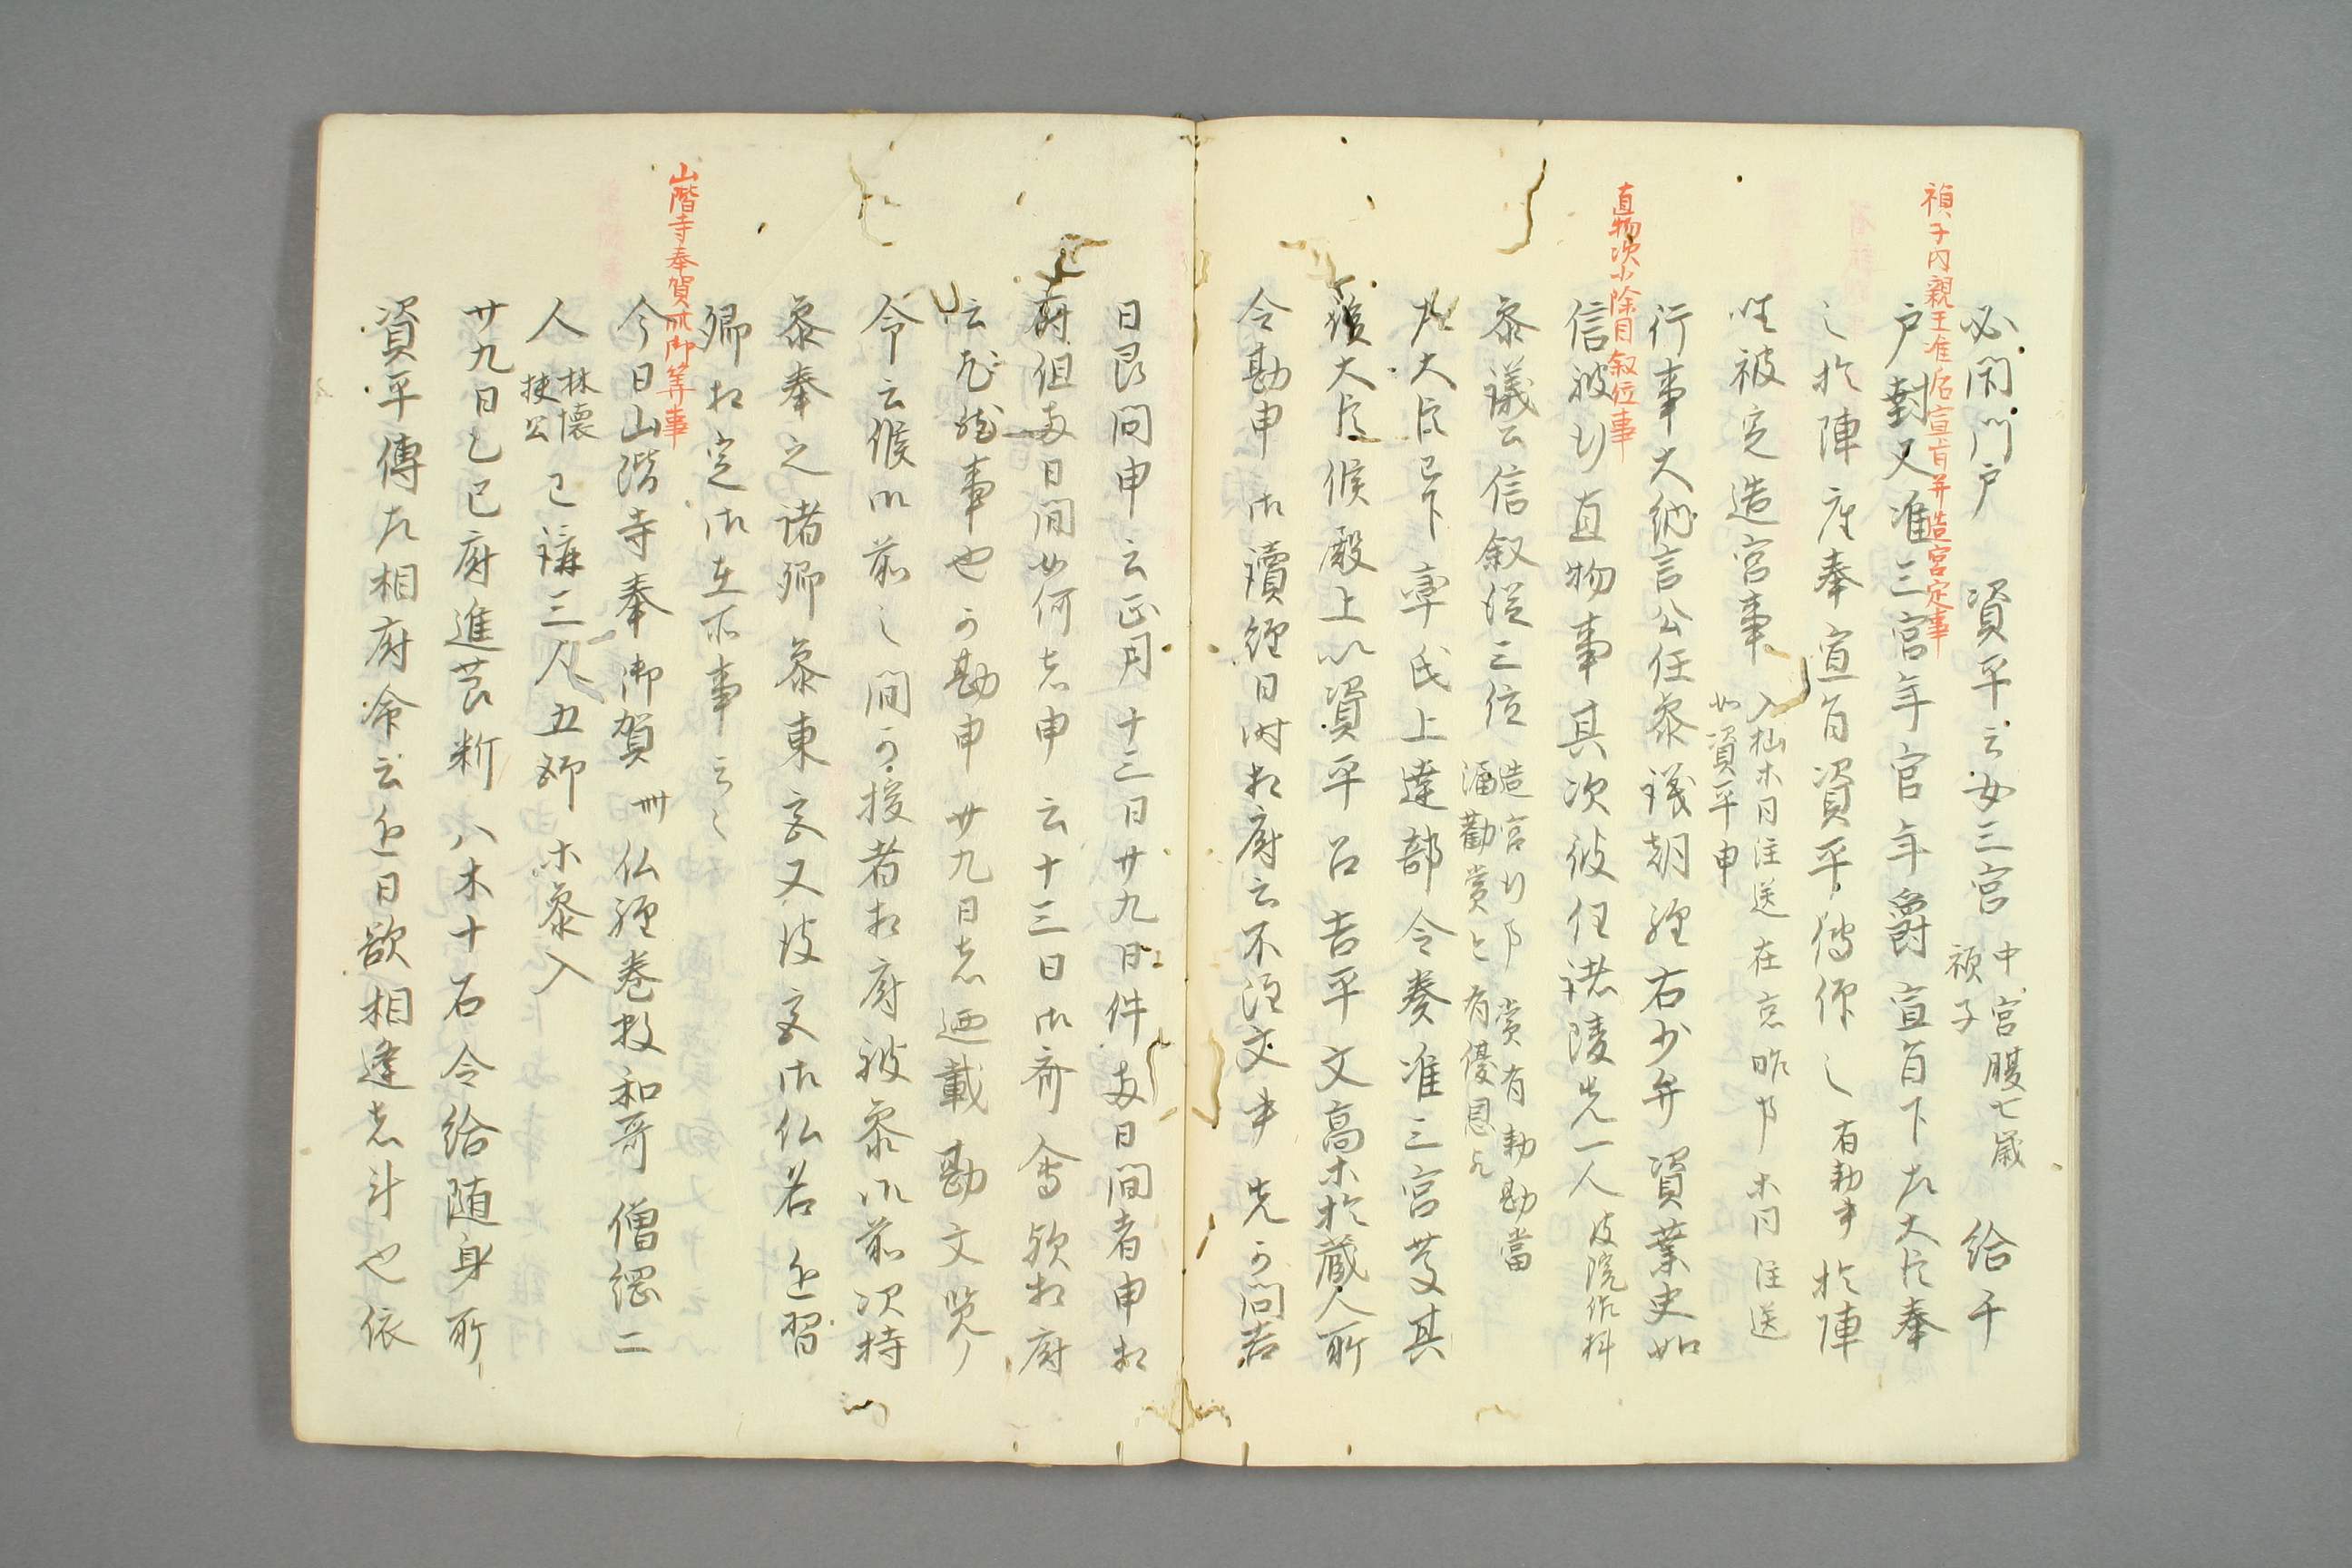 禎子内親王准后宣旨并造宮定事
必閇門戸 資平云女三宮 中宮腹七歳
禎子 給千
戸封又准三宮年官年爵宣旨下左大臣奉
之於陣座奉宣旨資平傳仰之 有勅事 於陣
座被定造宮事 入杣木日注送 在京昨 木同注送
如資平申
行事大納言公任参議朝経右少弁資業史如
直物次小除目叙位事
信被行直物事其次被任諸陵允一人 彼院作料
参議公信叙従三位 造宮行事賞有勅勘當
浴勸賞 有優恩
左大臣已下率氏上達部令奏准三宮慶其
後大臣候殿上以資平召吉平文高木於蔵人所
令勘申御讀経日時相府云不注文事先可問者
日良問申云正月十三日廿九日件両日間者申相
府但両日間如何者申云十三日御斎會歟相府
云尤能事也可勘申廿九日者廼載勘文覧
令云候御前之間可授者相府被参御前次将
参奉之諸卿参東宮又彼宮御仏名近習
卿相定御在所事云々
山階寺奉賀所御筭事
今日山階寺奉御賀 卌 仏経巻数和哥僧綱二
人 林懐
扶公 已講三人五師木参入
廿九日乙巳府進苡斬八木十石令給随身所
資平傳左相府命云近日欲相逢者斗也依